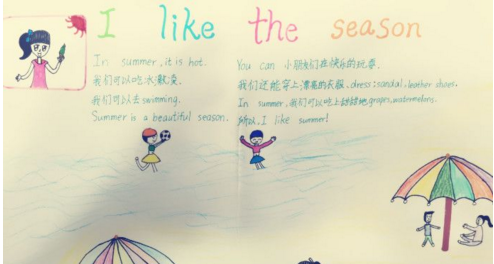 I like the season
In summer, it is hot.
我们可以吃冰激凌,
我们可以去swimming.
Summer is a beautiful season.
You can 小朋友们在快乐的玩耍.
我们还能穿上漂亮的衣服、dress、sandal、leather shoes.
In summer, 我们可以吃上甜甜地grapes、watermelons.
所以, I like summer!